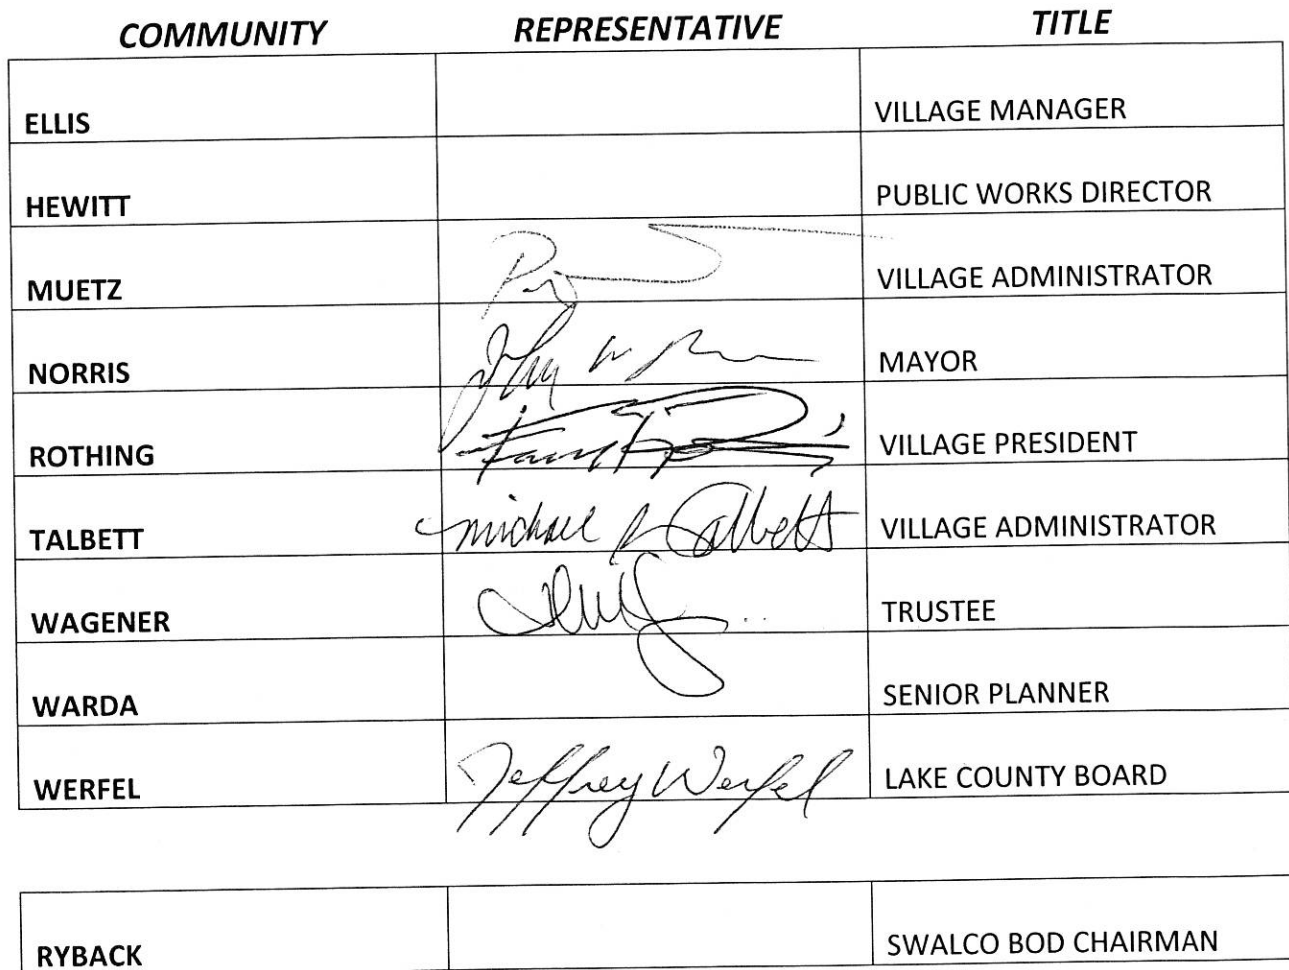 COMMUNITY REPRESENTATIVE TITLE
ELLIS VILLAGE MANAGER
HEWITT PUBLIC WORKS DIRECTOR
MUETZ VILLAGE ADMINISTRATOR
NORRIS MAYOR
ROTHING VILLAGE PRESIDENT
TALBETT michael Talbett VILLAGE ADMINISTRATOR
WAGENER TRUSTEE
WARDA SENIOR PLANNER
WERFEL Jeffrey Werfel LAKE COUNTY BOARD
RYBACK SWALCO BOD CHAIRMAN